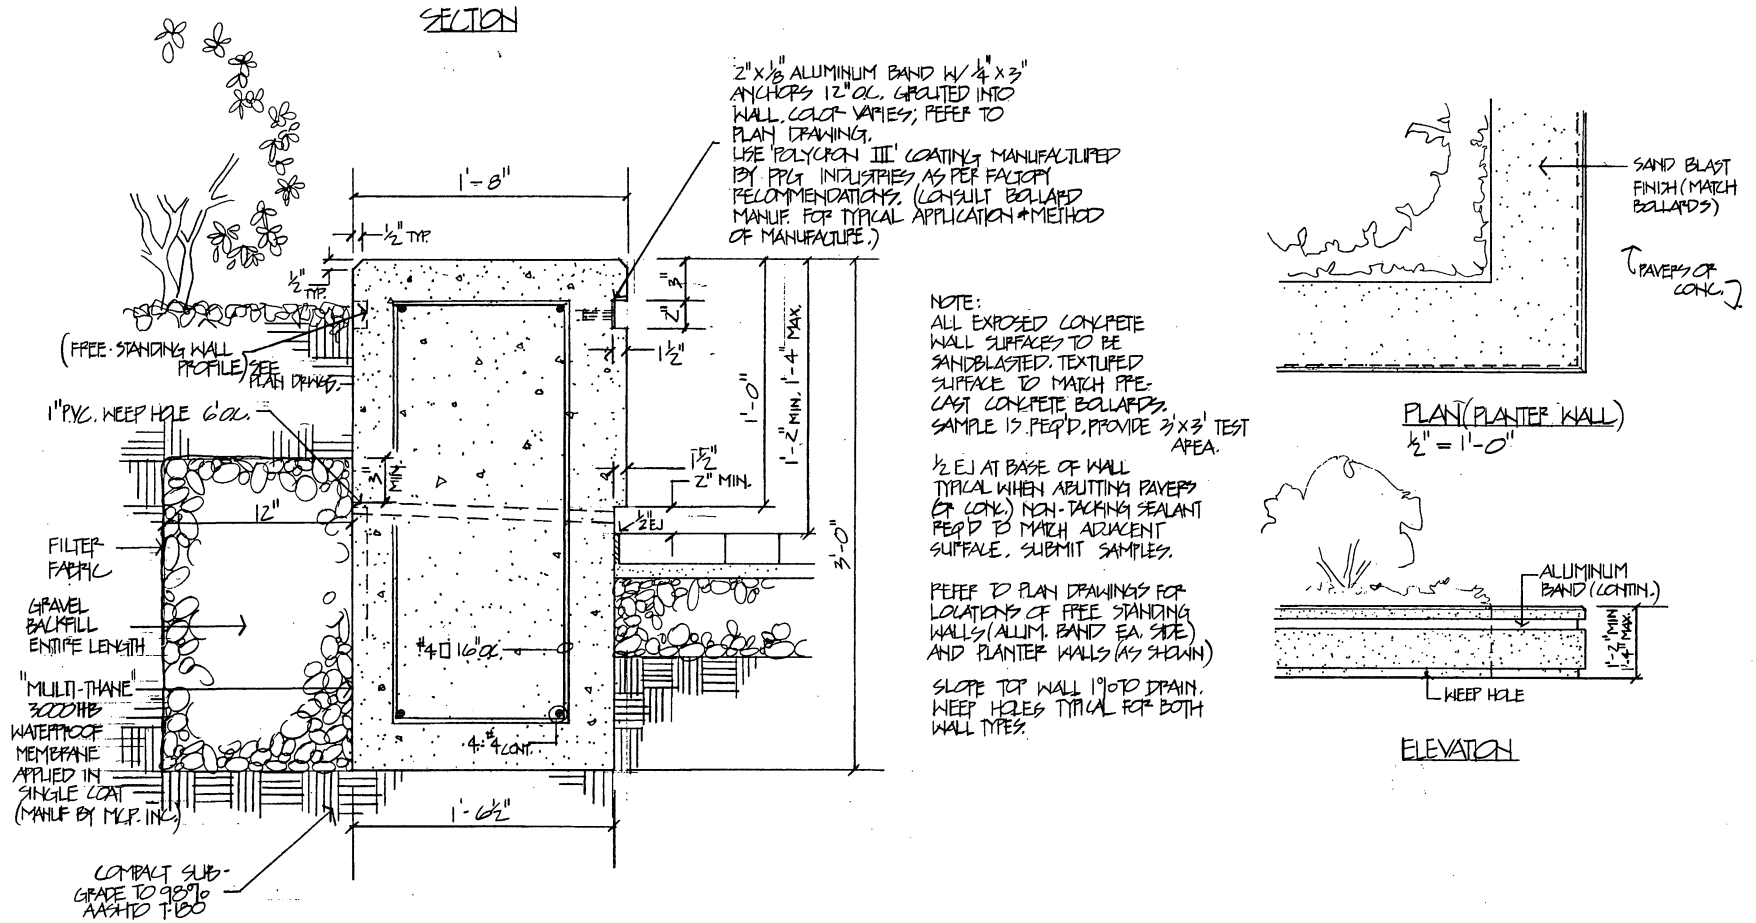 SECTION
2" X 1/8" ALUMINUM BAND W/ 1/4" X 3"
ANCHORS 12" O.C. GROUTED INTO
WALL. COLOR VARIES; REFER TO
PLAN DRAWING.
USE 'POLYCRON III' COATING MANUFACTURED
BY PPG INDUSTRIES AS PER FACTORY
RECOMMENDATIONS. (CONSULT BOLLARD
MANUF. FOR TYPICAL APPLICATION & METHOD
OF MANUFACTURE.)
1'-8"
1/2" TYP.
1/2"
TYP.
3"
2"
1 1/2"
1'-0"
1'-2" MIN. 1'-4" MAX.
3'-0"
(FREE-STANDING WALL
PROFILE) SEE
PLAN DRWGS.
1" P.V.C. WEEP HOLE 6' O.C.
3"
MIN.
1 1/2"
2" MIN.
1/2" EJ
12"
FILTER
FABRIC
GRAVEL
BACKFILL
ENTIRE LENGTH
"MULTI-THANE"
3000 HB
WATERPROOF
MEMBRANE
APPLIED IN
SINGLE COAT
(MANUF BY M.C.P. INC.)
#4 □ 16" O.C.
4-#4 CONT.
1'-6 1/2"
COMPACT SUB-
GRADE TO 98%
AASHTO T-180
NOTE:
ALL EXPOSED CONCRETE
WALL SURFACES TO BE
SANDBLASTED. TEXTURED
SURFACE TO MATCH PRE-
CAST CONCRETE BOLLARDS.
SAMPLE IS REQ'D. PROVIDE 3'X3' TEST
AREA.
1/2 EJ AT BASE OF WALL
TYPICAL WHEN ABUTTING PAVERS
(OR CONC.) NON-TACKING SEALANT
REQ'D TO MATCH ADJACENT
SURFACE. SUBMIT SAMPLES.
REFER TO PLAN DRAWINGS FOR
LOCATIONS OF FREE STANDING
WALLS (ALUM. BAND EA. SIDE)
AND PLANTER WALLS (AS SHOWN)
SLOPE TOP WALL 1% TO DRAIN.
WEEP HOLES TYPICAL FOR BOTH
WALL TYPES.
SAND BLAST
FINISH (MATCH
BOLLARDS)
PAVERS OR
CONC.
PLAN (PLANTER WALL)
1/2" = 1'-0"
ALUMINUM
BAND (CONTIN.)
1'-2" MIN
1'-4" MAX.
WEEP HOLE
ELEVATION